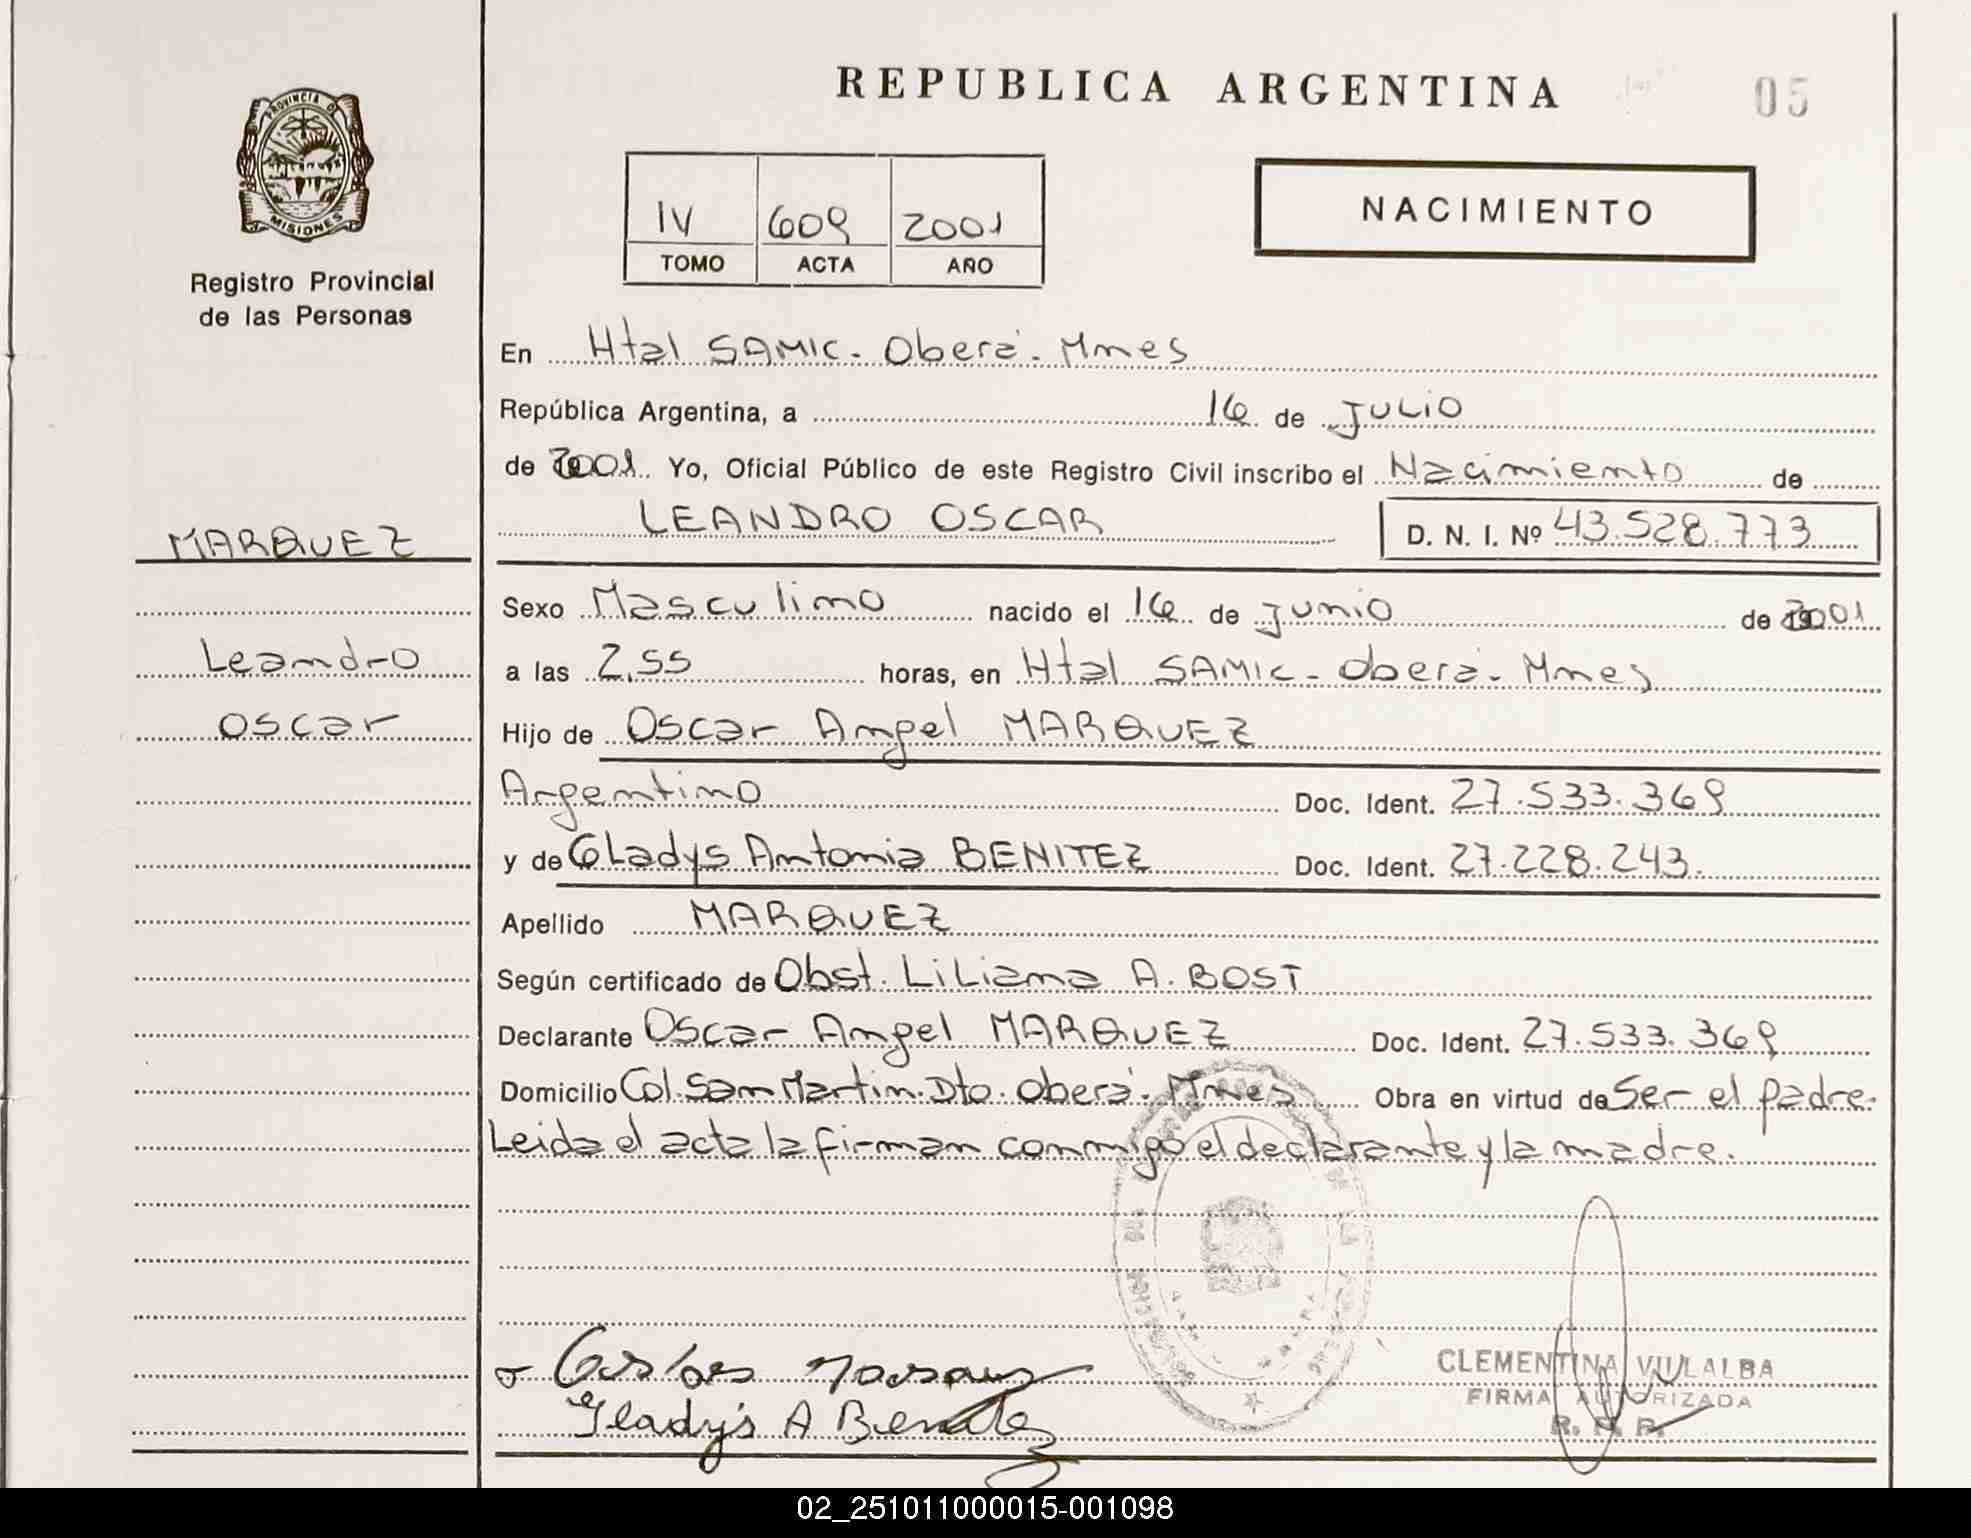 REPUBLICA ARGENTINA
05
PROVINCIA DE
MISIONES
Registro Provincial
de las Personas
IV 609 2001
TOMO ACTA AÑO
NACIMIENTO
En Htal SAMIC - Oberá - Mnes
República Argentina, a 16 de JULIO
de 2001 Yo, Oficial Público de este Registro Civil inscribo el Nacimiento de
LEANDRO OSCAR D. N. I. Nº 43.528.773
MARQUEZ
Leandro
Oscar
Sexo Masculino nacido el 16 de Junio de 2001
a las 2,55 horas, en Htal SAMIC - Oberá - Mnes
Hijo de Oscar Angel MARQUEZ
Argentino Doc. Ident. 27.533.369
y de Gladys Antonia BENITEZ Doc. Ident. 27.228.243.
Apellido MARQUEZ
Según certificado de Obst. Liliana A. BOST
Declarante Oscar Angel MARQUEZ Doc. Ident. 27.533.369
Domicilio Col. San Martin. Dto. Oberá. Mnes Obra en virtud de Ser el padre.
Leida el acta la firman conmigo el declarante y la madre.
CLEMENTINA VILLALBA
FIRMA AUTORIZADA
R. P. P.
Gladys A Benitez
02_251011000015-001098